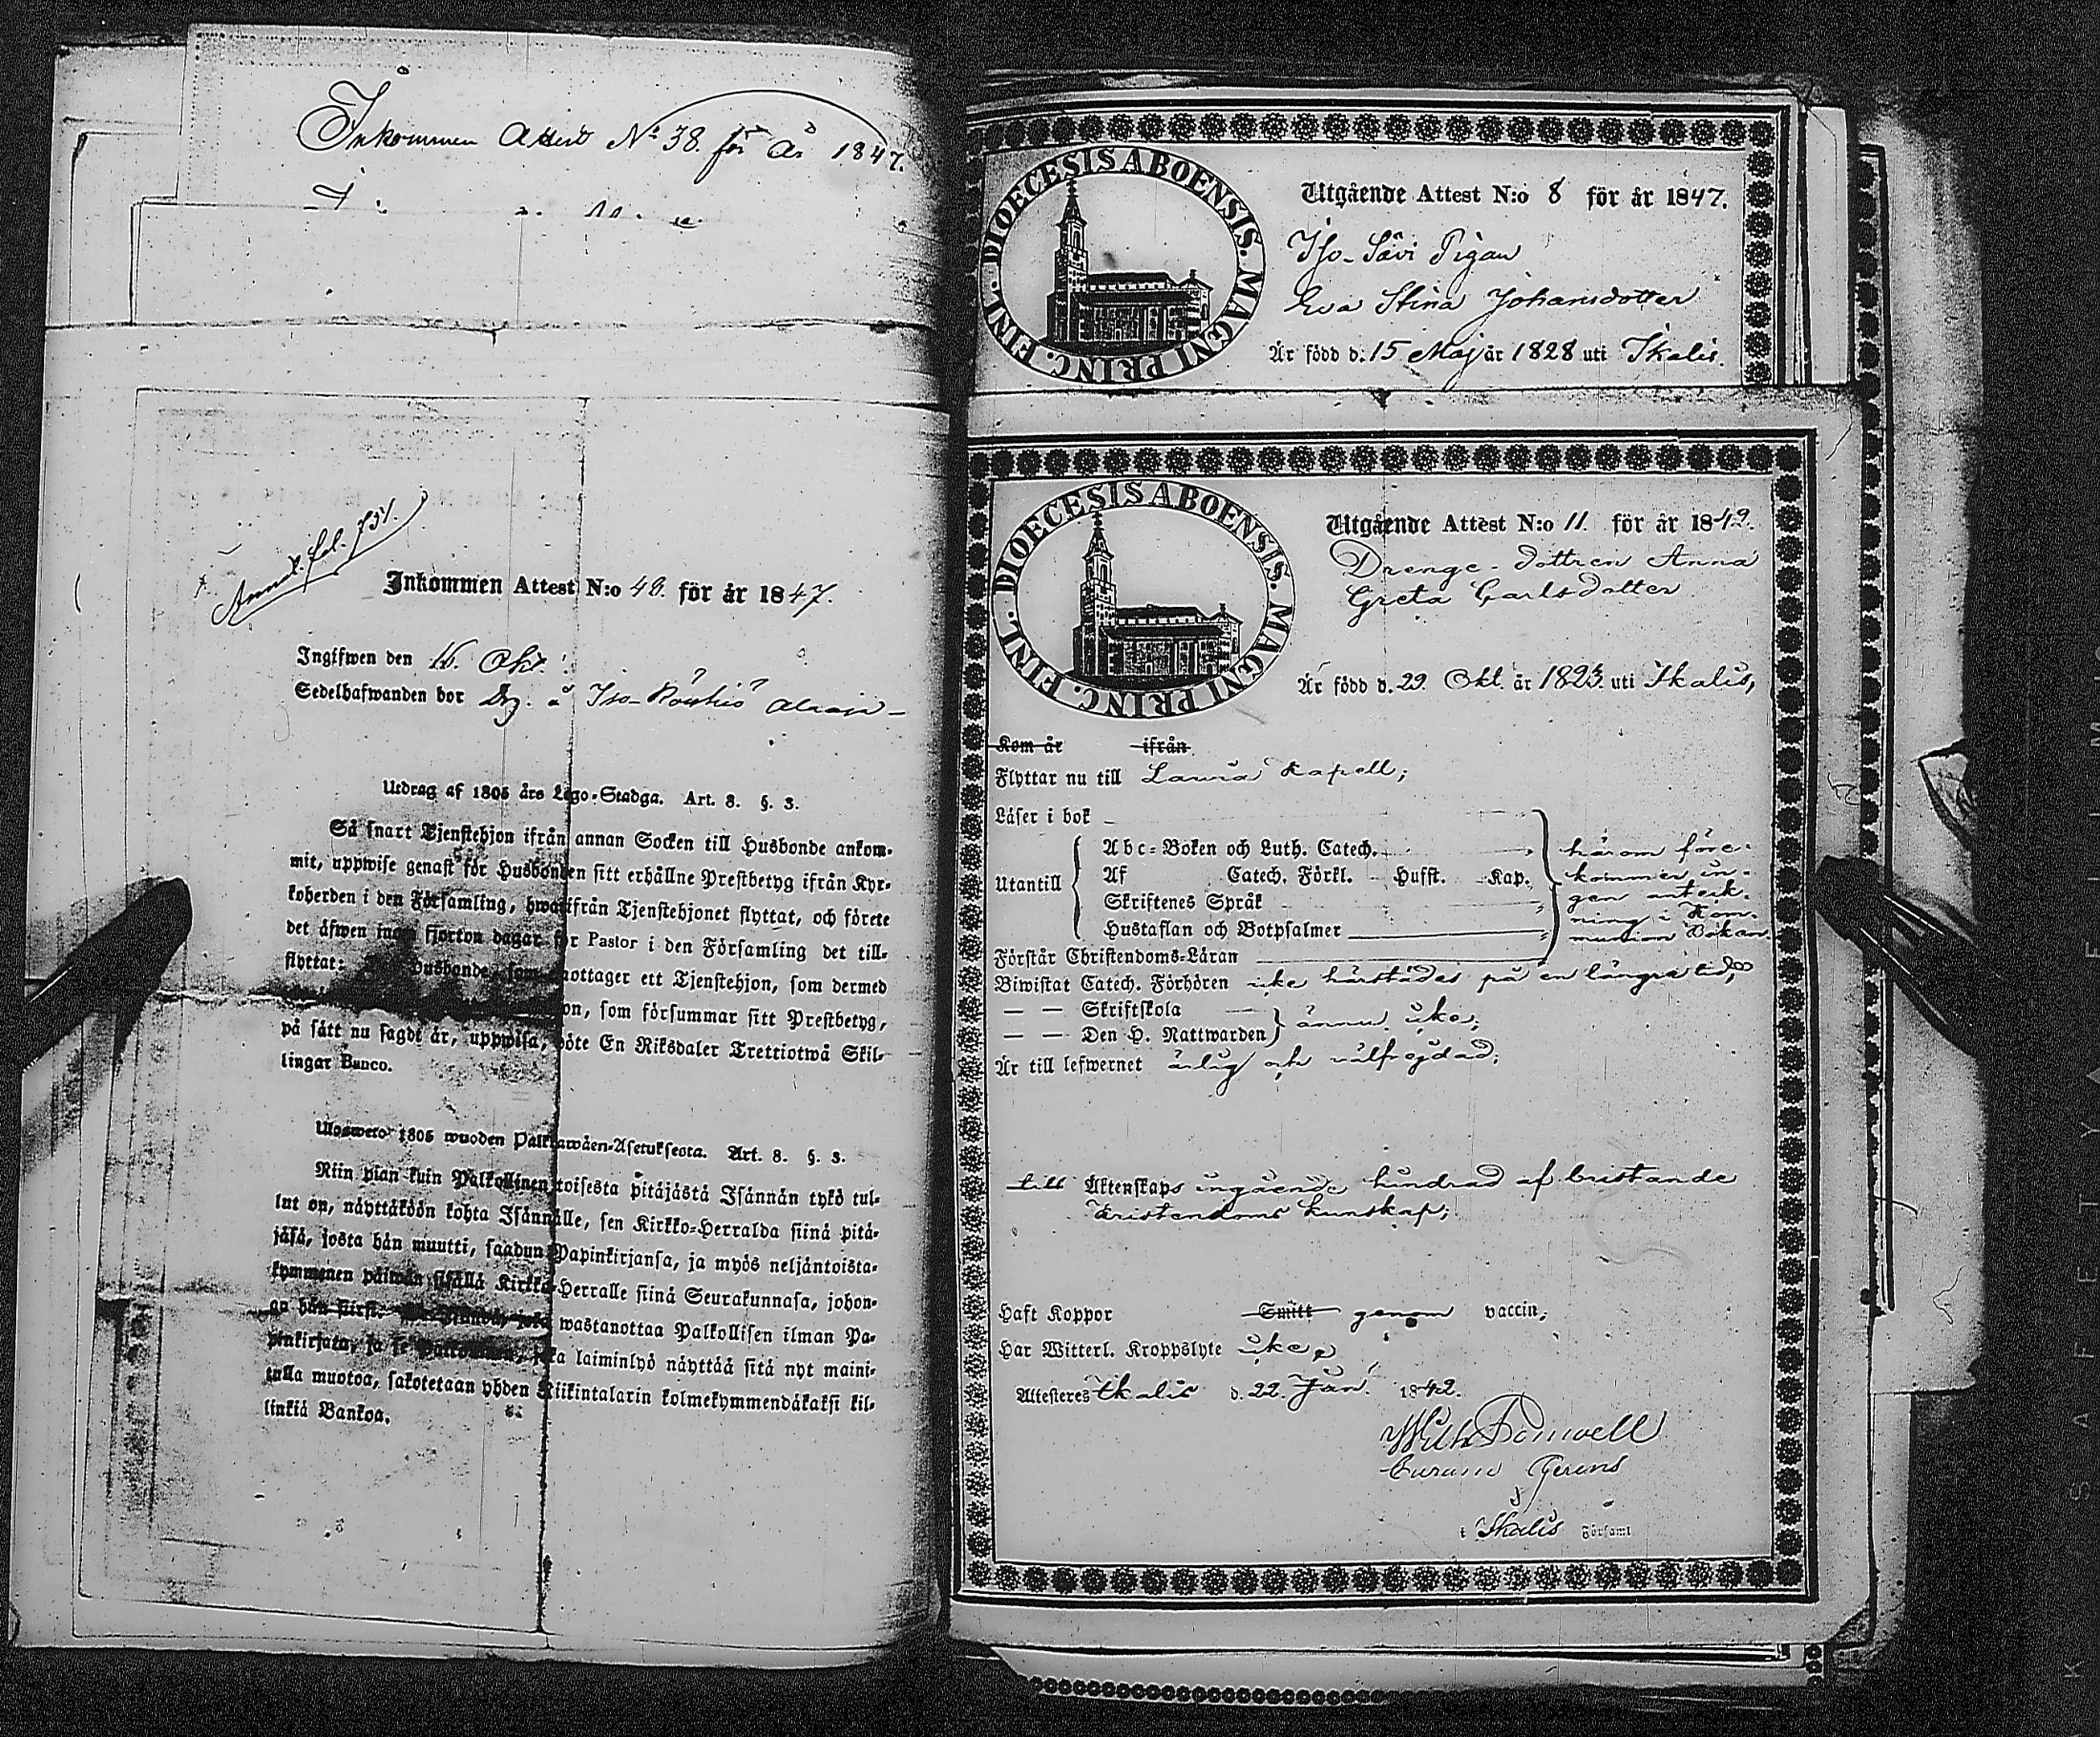 Inkommen Attest No 38. för år 1847.
Annot. fol. 751.
Inkommen Attest N:o 49. för år 1847.
Ingifwen den 16. Okt.
Sedelhafwanden bor Drg. å Iso-Röyhiö
Utdrag af 1805 års Lego-Stadga. Art. 8. §. 3.
Så snart Tjenstehjon ifrån annan Socken till Husbonde ankom-
mit, uppwise genast för Husbonden sitt erhållne Prestbetyg ifrån Kyr-
koherden i den Församling, hwarifrån Tjenstehjonet flyttat, och förete
det äfwen inom fjorton dagar för Pastor i den Församling det till-
flyttat: Husbonde, som mottager ett Tjenstehjon, som dermed
som försummar sitt Prestbetyg,
på sätt nu sagdt är, uppwisa, böte En Riksdaler Trettiotwå Skil-
lingar Banco.
Ulosweto 1805 wuoden Palkkawäen-Asetuksesta. Art. 8. §. 3.
Niin pian kuin Palkollinen toisesta pitäjästä Isännän tykö tul-
lut on, näyttäköön kohta Isännälle, sen Kirkko-Herralda siinä pitä-
jäsä, josta hän muutti, saadun Papinkirjansa, ja myös neljäntoista-
kymmenen päiwän sisällä Kirkko-Herralle siinä Seurakunnasa, johon-
ga hän siirsi. wastanottaa Palkollisen ilman Pa-
pinkirjata, ja se joka laiminlyö näyttää sitä nyt maini-
tulla muotoa, sakotetaan yhden Riikintalarin kolmekymmendäkaksi kil-
linkiä Bankoa.
DIOECESIS ABOENSIS. MAGNI PRINC. FINL.
Utgående Attest N:o 8 för år 1847.
Iso-Säwi Pigan
Eva Stina Johansdotter
Är född d. 15 Maj år 1828 uti Ikalis.
DIOECESIS ABOENSIS. MAGNI PRINC. FINL.
Utgående Attest N:o 11. för år 1842.
Drenge-dottren Anna
Greta Carlsdotter
Är född d. 29. Okt. år 1823. uti Ikalis,
Kom år ifrån
Flyttar nu till Lawia Kapell;
Läser i bok
Utantill
Abc-Boken och Luth. Catech.
Af Catech. Förkl. Hufst. Kap.
Skriftenes Språk
Hustaflan och Botpsalmer
härom före-
kommer in-
gen anteck-
ning i Kom-
munion Bokan
Förstår Christendoms-Läran
Biwistat Catech. Förhören icke härstädes på en längre tid,
— — Skriftskola
— — Den H. Nattwarden
ännu icke;
Är till lefwernet ärlig och välfrejdad;
till Äktenskaps ingående hindrad af bristande
Kristendoms kunskap;
Haft Koppor Smitt genom vaccin;
Har Witterl. Kroppslyte icke,
Attesteres Ikalis d. 22. Jan. 1842.
Wilh.
Curam Gerens
i Ikalis Församl